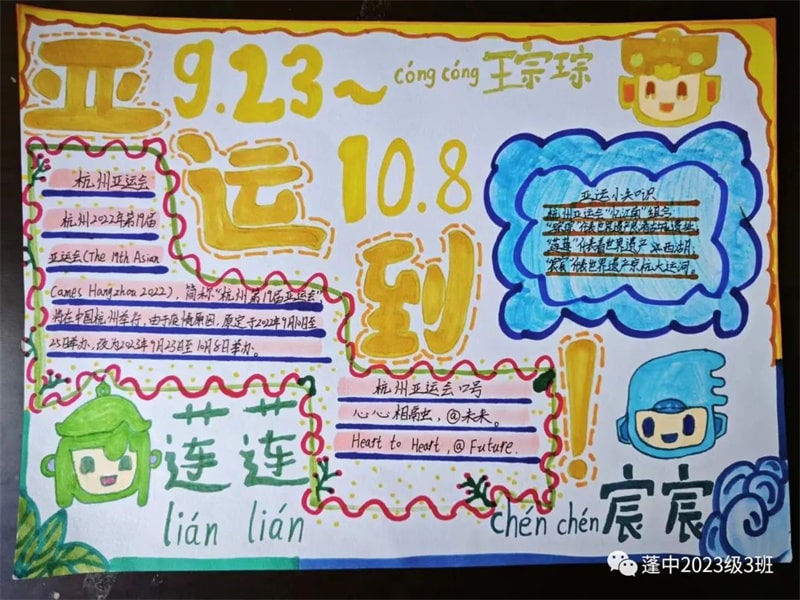 亚运到!
9.23~
10.8
cóng cóng 琮琮
杭州亚运会
杭州2022年第19届
亚运会(The 19th Asian
Games Hangzhou 2022), 简称"杭州第19届亚运会"
将在中国杭州举行,由于疫情原因,原定于2022年9月10日至
25日举办,改为2023年9月23日至10月8日举办。
亚运小知识
杭州亚运会"忆江南"组合
"琮琮"代表世界遗产良渚古城遗址,
"莲莲"代表着世界遗产 西湖,
"宸宸"代表世界遗产京杭大运河。
杭州亚运会口号
心心相融,@未来。
Heart to Heart, @ Future.
莲莲
lián lián
chén chén 宸宸
蓬中2023级3班